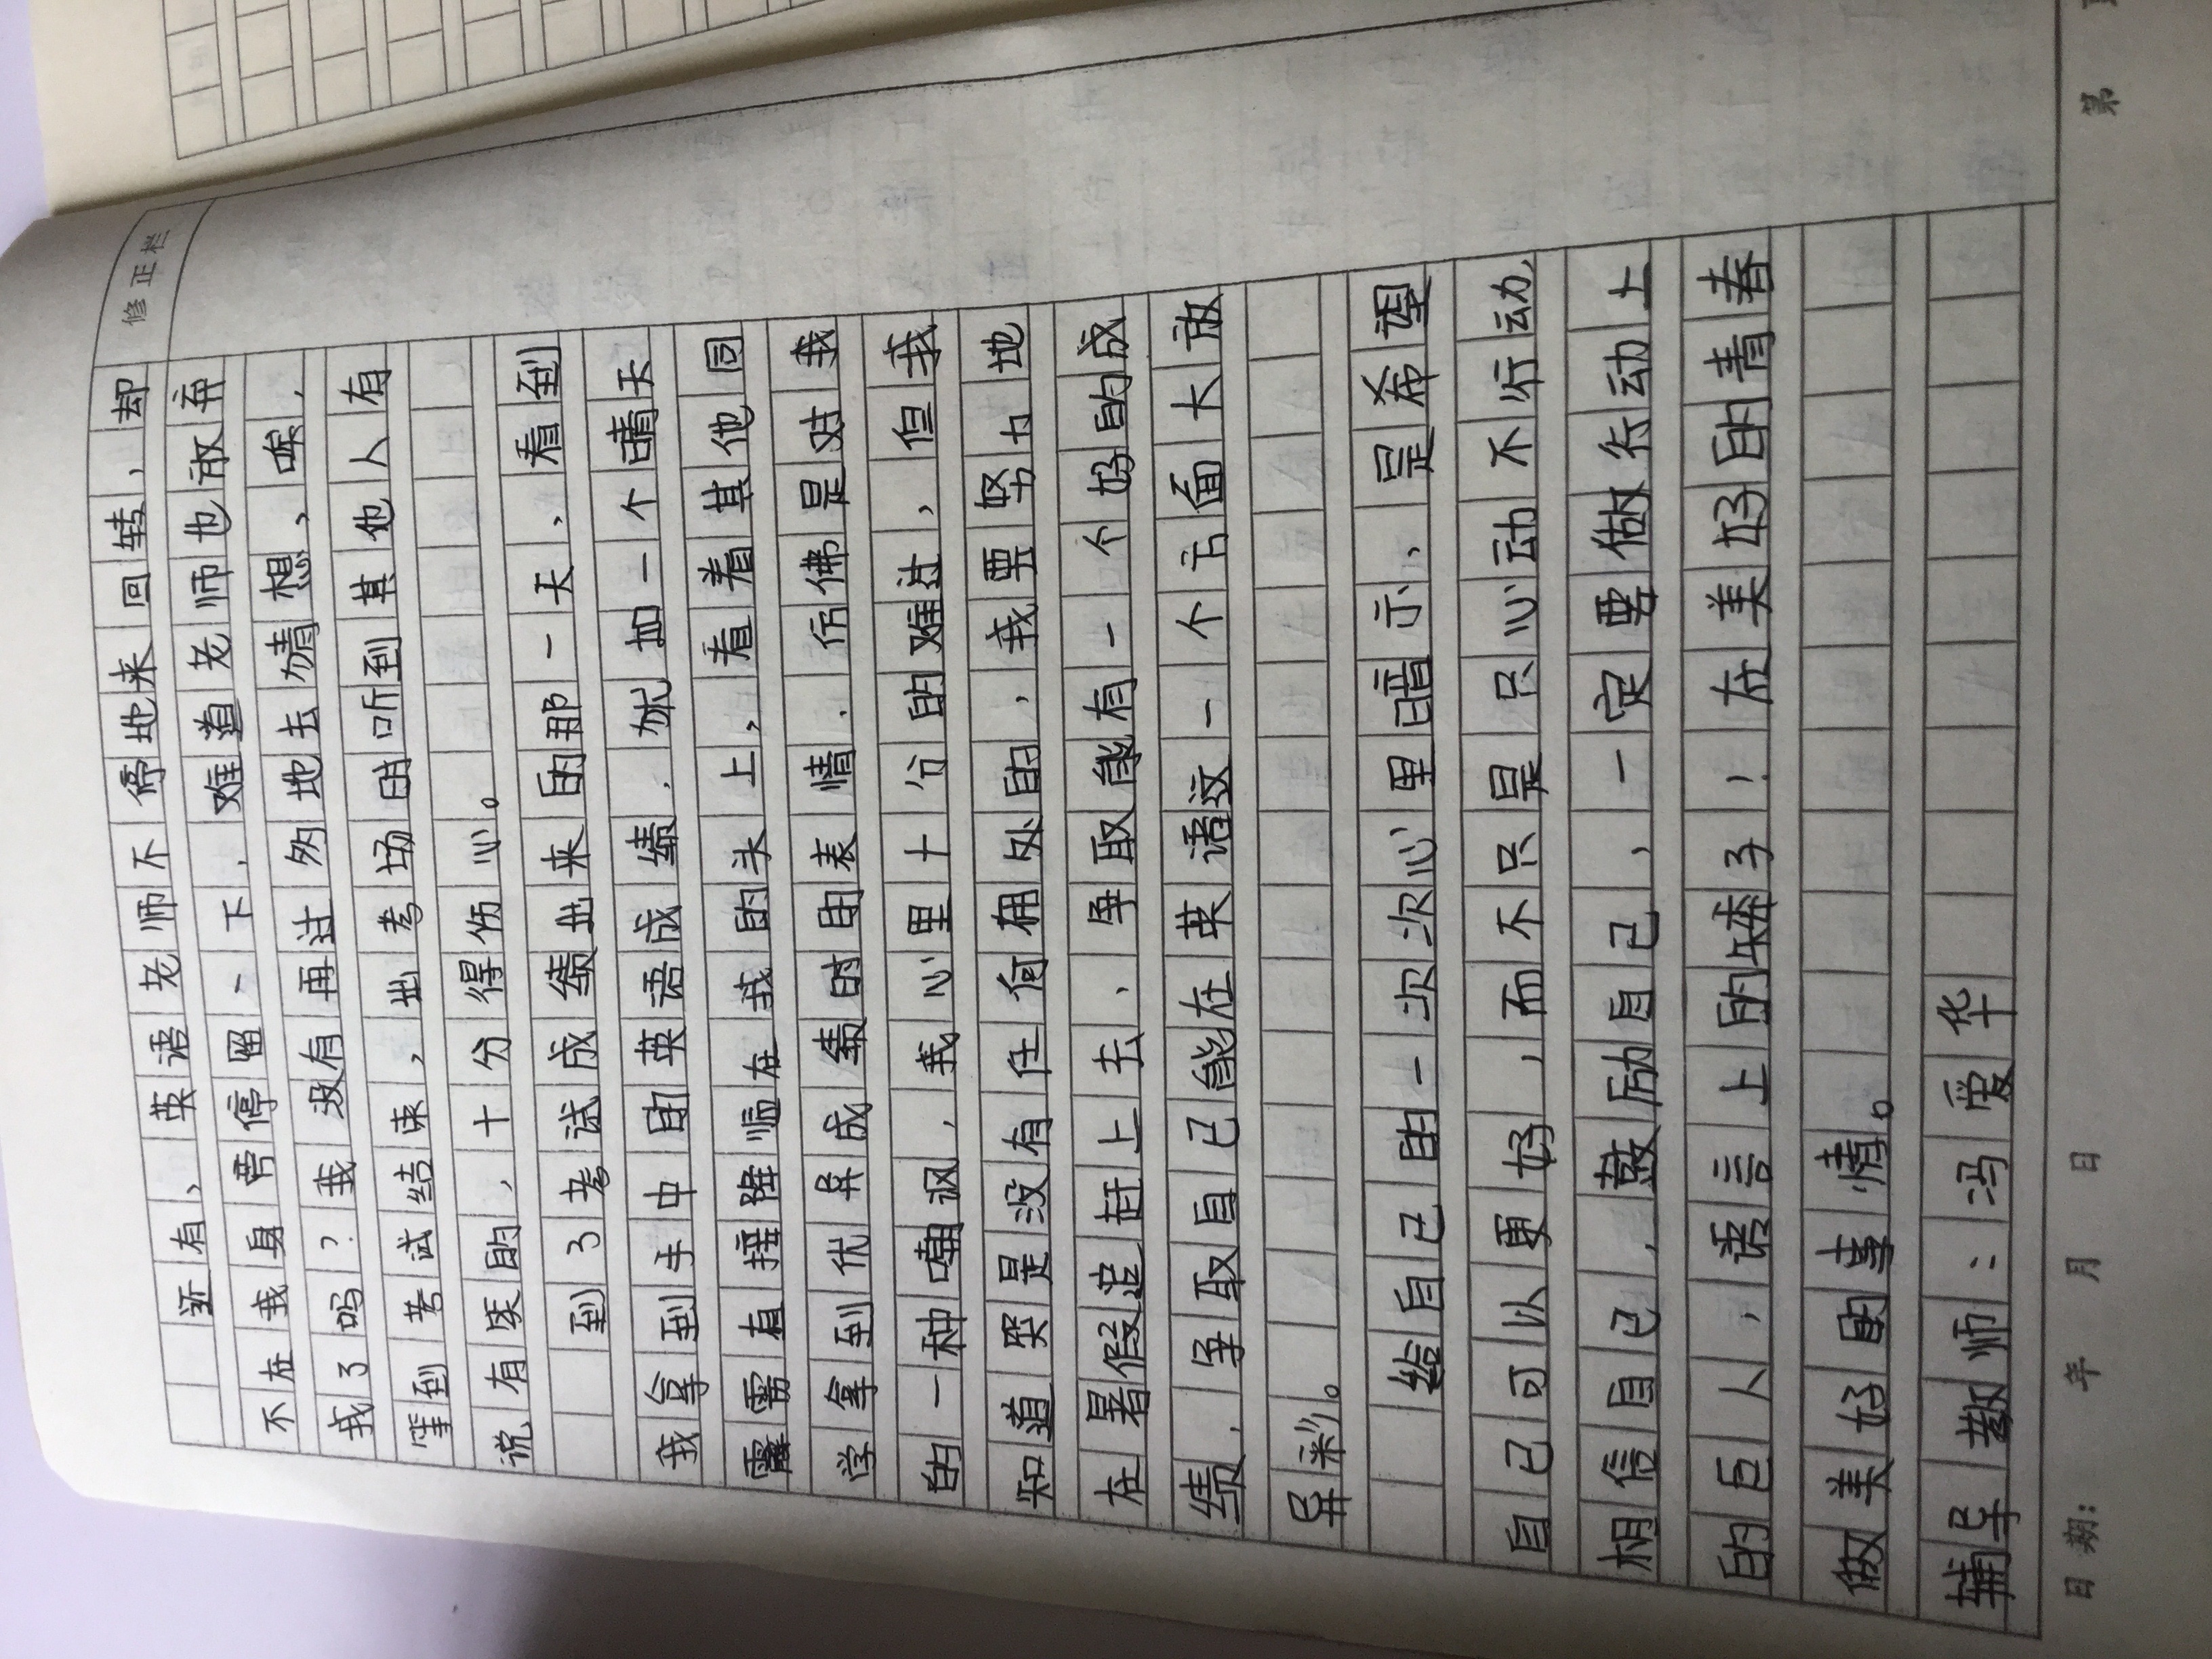 修正栏
还有、英语老师不停地来回转、却
不在我身旁停留一下、难道老师也放弃
我了吗？我没有再过多地去猜想、唉、
等到考试结束，出考场时听到其他人有
说有笑的、十分得伤心。
到了考试成绩出来的那一天、看到
我拿到手中的英语成绩、犹如一个晴天
霹雳直接降临在我的头上，看着其他同
学拿到优异成绩时的表情、仿佛是对我
的一种嘲讽、我心里十分的难过，但我
知道哭是没有任何用处的、我要努力地
在暑假追赶上去、争取能有一个好的成
绩、争取自己能在英语这一个方面大放
异彩。
给自己的一次次心里暗示、是希望
自己可以更好，而不只是只心动不行动、
相信自己、鼓励自己，一定要做行动上
的巨人，语言上的矮子！在美好的青春
做美好的事情。
辅导教师：冯爱华
日期： 年 月 日 第